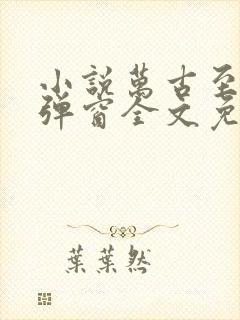 小說萬古至
彈窗全文免
葉葉然